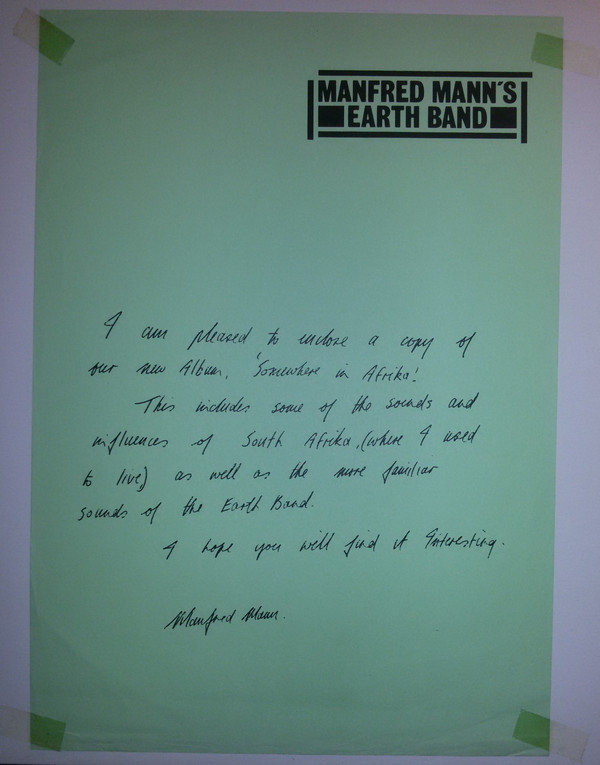 MANFRED MANN'S
EARTH BAND
I am pleased to inclose a copy of
our new Album, 'Somewhere in Afrika'.
This includes some of the sounds and
influences of South Afrika, (where I used
to live) as well as the more familiar
sounds of the Earth Band.
I hope you will find it Interesting.
Manfred Mann.